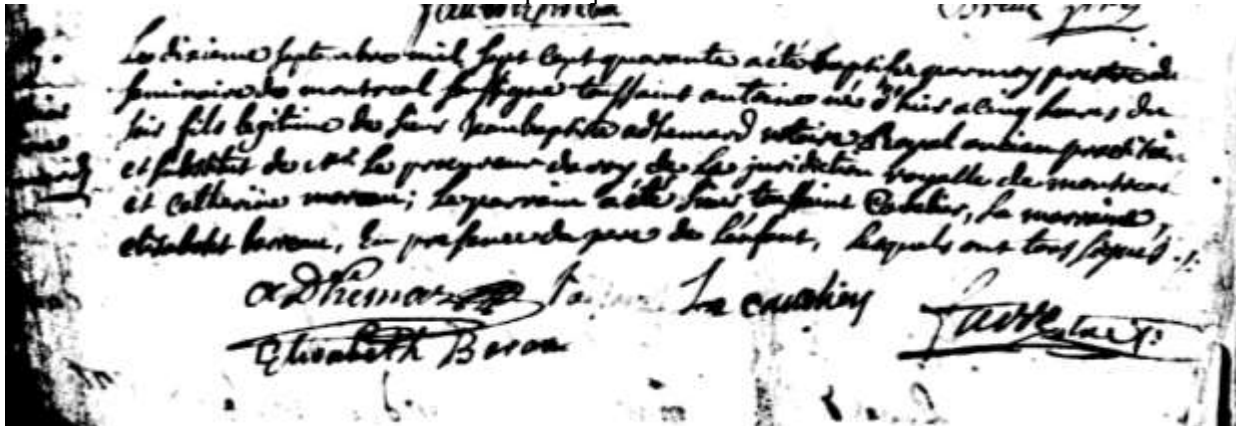 Le dixieme septembre mil sept cent quarante a été baptisé par moy prestre du
seminaire de montreal soussigné toussaint antoine né d'hier a cinq heures du
soir fils legitime de sieur Jean baptiste adhemard notaire Royal ancien praticien
et substitut de Mr Le procureur du roy de La juridiction royalle de montreal
et catherine moreau; Le parrain a été sieur toussaint Cavelier, La marraine,
elisabeth barreau, En presence du pere de L'enfant, Lesquels ont tous signés.
adhemar La cavalier favre
Elisabeth Berau